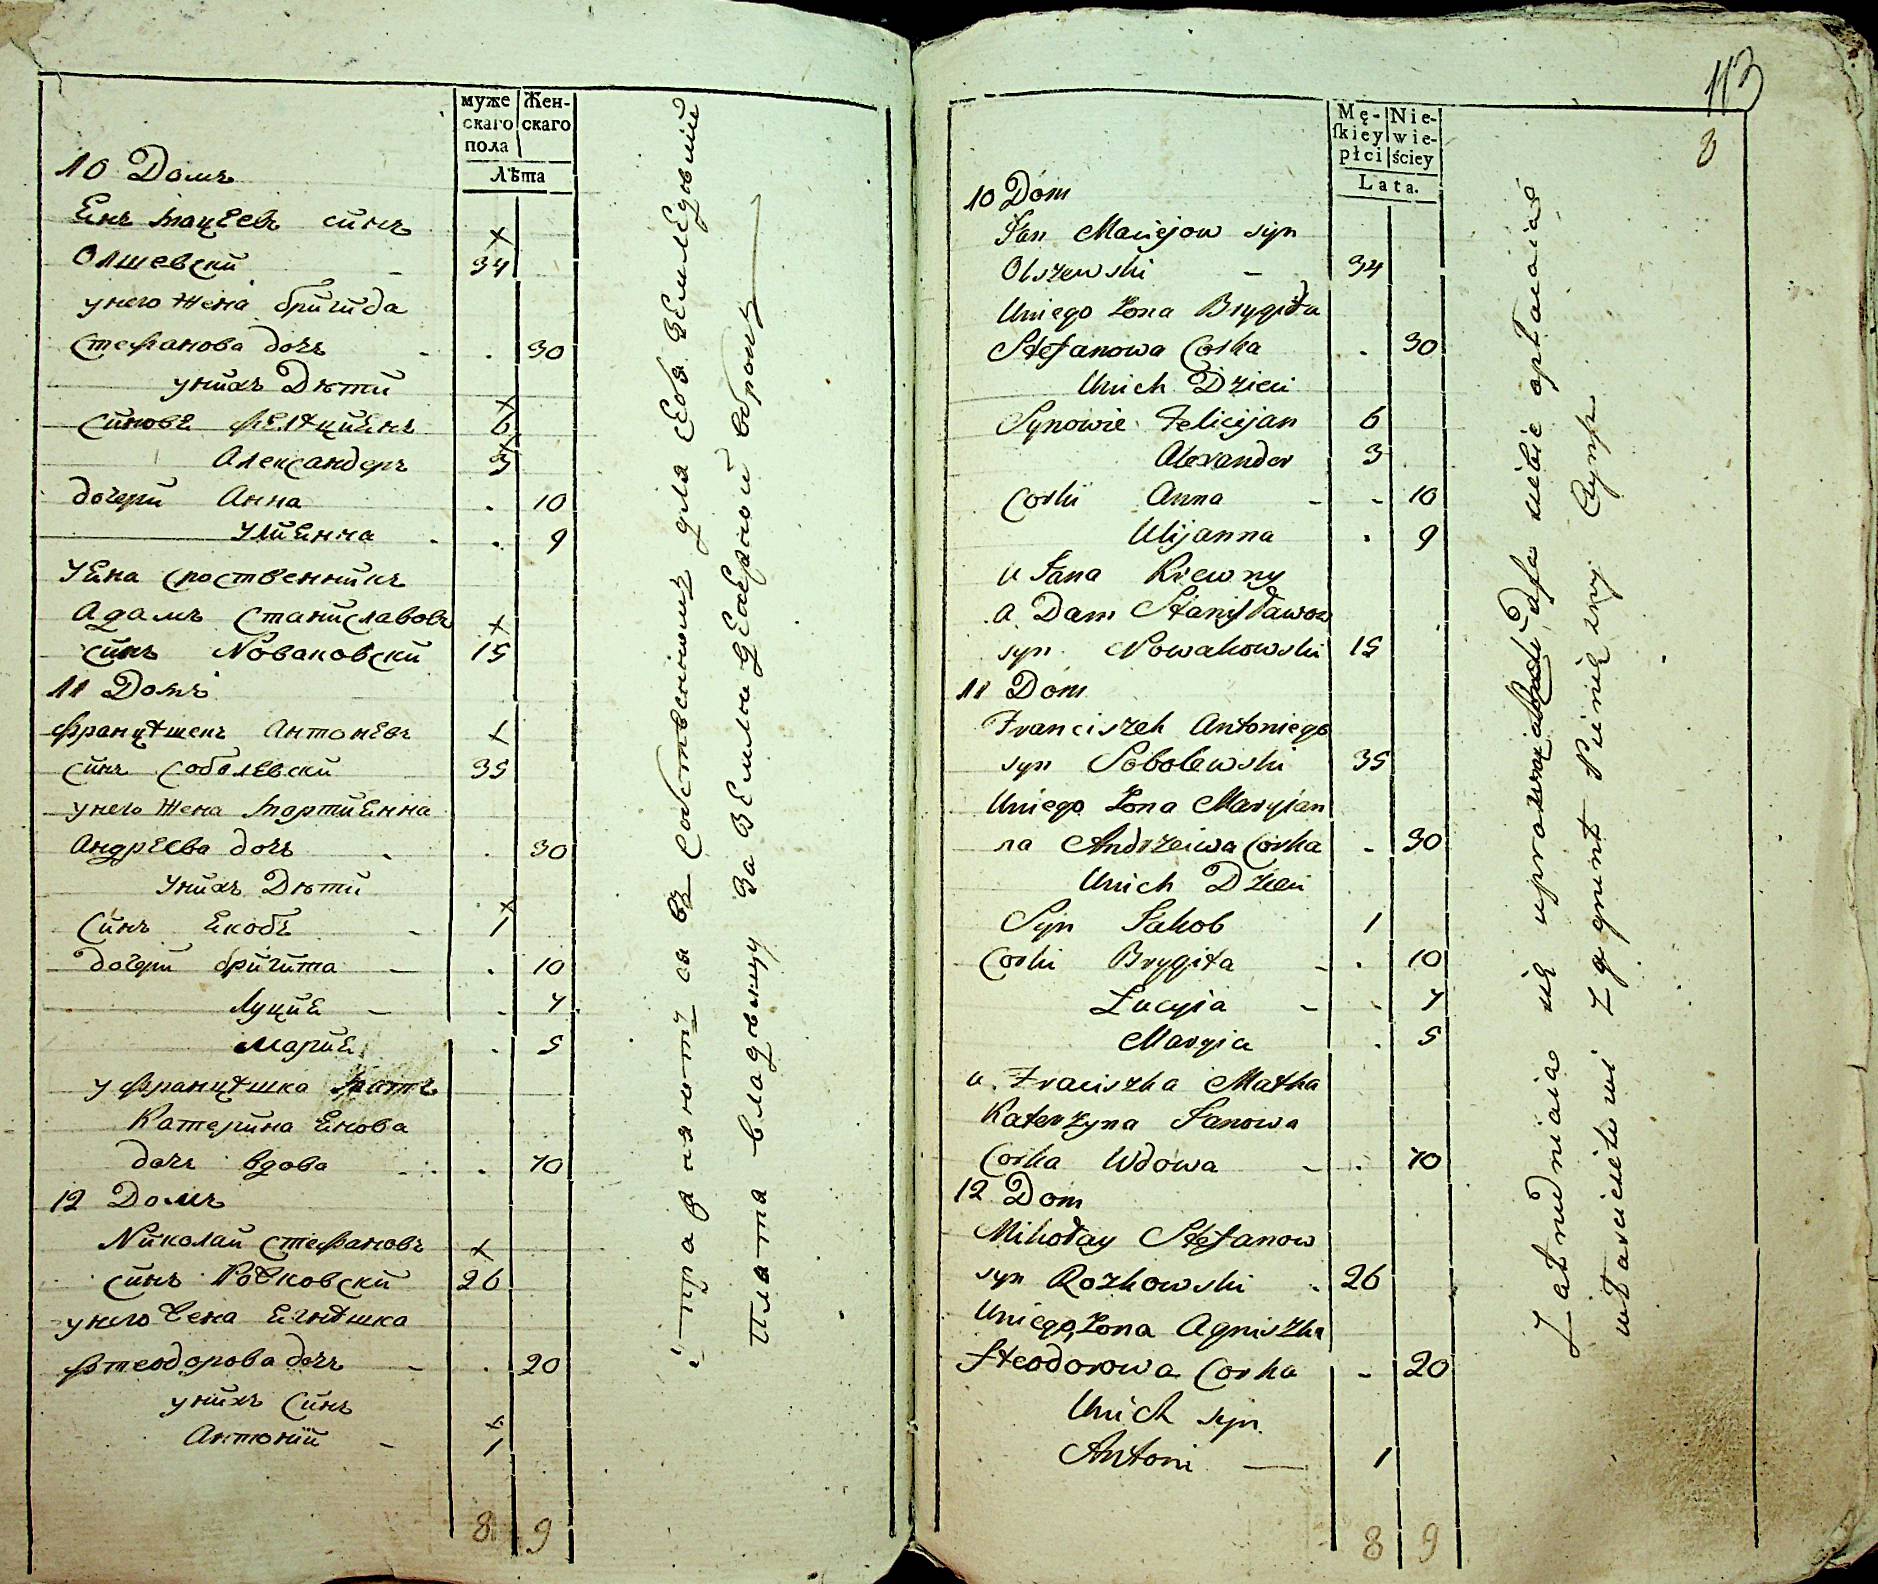 муже
скаго
пола
Жен-
скаго
Лѣта
10 Домъ
Енъ Мацеевъ синъ
Олшевский - 34
унего жена бригида
Стефанова дочъ . 30
унихъ Дѣти
синове Фелициенъ 6
Александеръ 3
дочери Анна . 10
Улиенна . 9
Уена сроственникъ
Адамъ Станиславовъ
синъ Новаковский 15
11 Домъ
Францишекъ Антоневъ
синъ Соболевский 35
унего жена Марциенна
Андреева дочъ . 30
Унихъ Дѣти
Синъ Екобъ - 1
дочери бригита - . 10
Луцие - . 7
Марие . 5
у Францишка Матъ
Катерина Енова
дочъ вдова . 70
12 Домъ
Николай Стефановъ
синъ 26
унего Жена Егнешка
Фтеодорова дочъ - . 20
унихъ Синъ
Антоний - 1
8 9
сь въ собственномъ для себя
Плата владелцу за Земли
113
8
Mę-
skiey
płci
Nie-
wie-
ściey
Lata.
10 Dom
Jan Maciejow syn
Olszewski - 34
Uniego Zona Brygida
Stefanowa Corka . 30
Unich Dzieci
Synowie Felicijan 6
Alexander 3
Corki Anna - - 10
Ulijanna . 9
u Jana Krewny
a Dam Stanisławow
syn Nowakowski 15
11 Dom
Franciszek Antoniego
syn Sobolewski 35
Uniego Zona Maryjan
na Andrzeiwa Corka - 30
Unich Dzieci
Syn Jakob 1
Corki Brygita - . 10
Lucyia - . 7
Maryia . 5
u Fraciszka Matka
Katerzyna Janowa
Corka Wdowa - . 70
12 Dom
Mikołay Stefanow
syn Rozkowski . 26
Uniego Zona Agniszka
fteodorowa Corka - 20
Unich syn
Antoni - 1
8 9
Zatrudniaia się dla siebie opłacaiąc
włascicielowi z grunt Pienięzny Czynsz